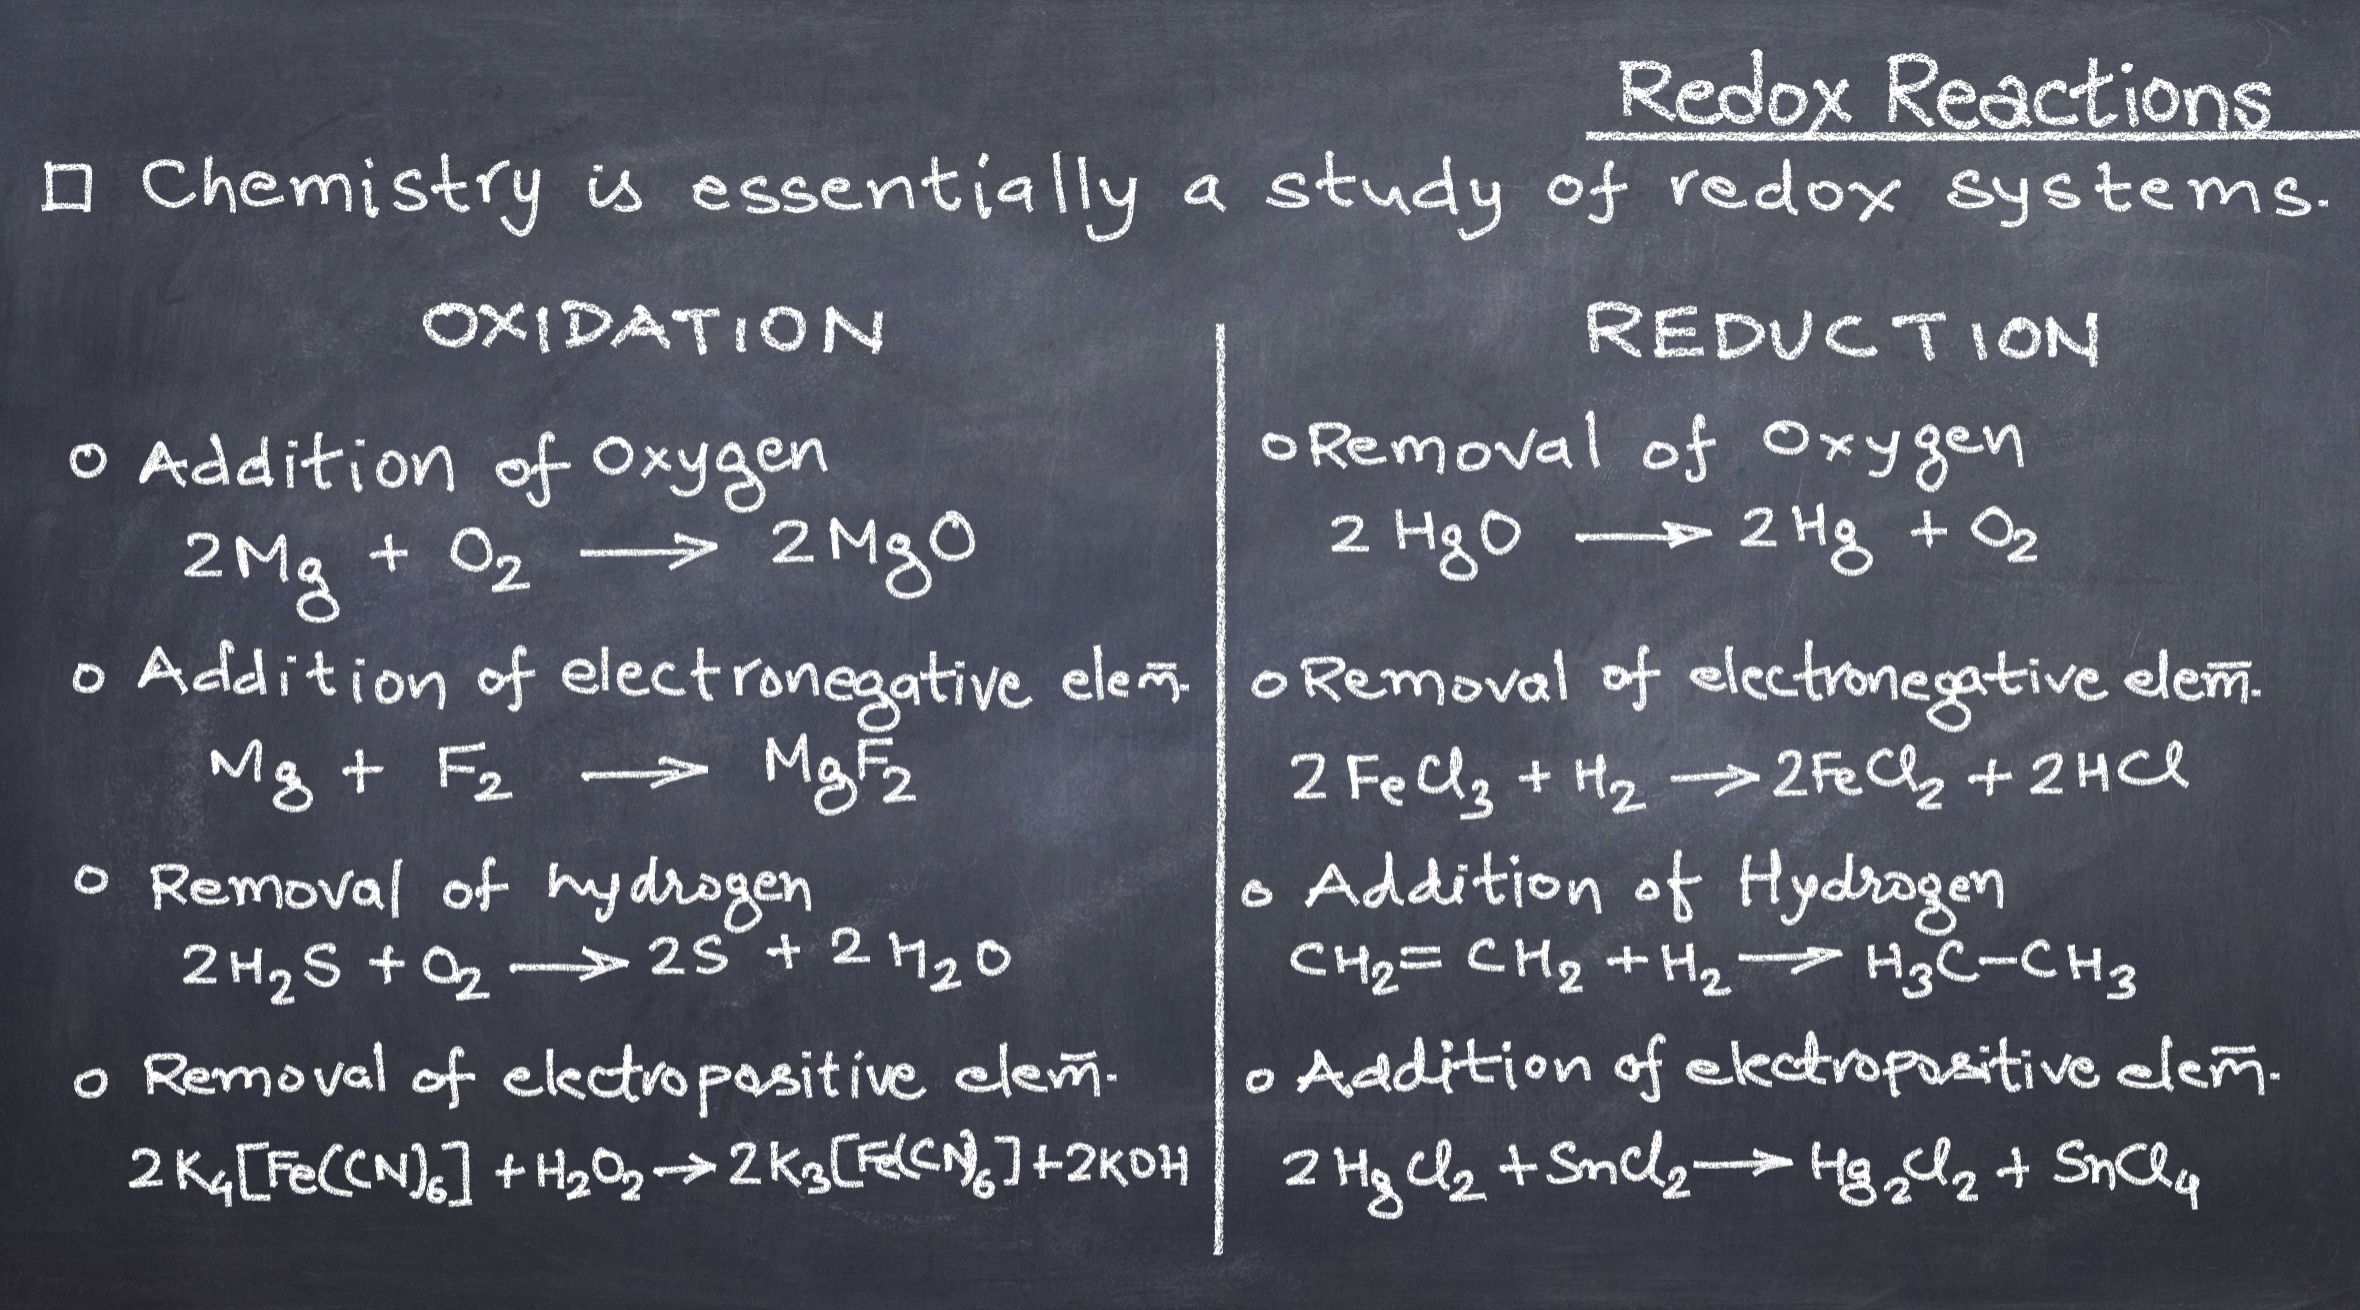 Redox Reactions
□ Chemistry is essentially a study of redox systems.
OXIDATION
o Addition of Oxygen
2Mg + O₂ → 2MgO
o Addition of electronegative elem̄.
Mg + F₂ → MgF₂
o Removal of hydrogen
2H₂S + O₂ → 2S + 2H₂O
o Removal of electropositive elem̄.
2K₄[Fe(CN)₆] + H₂O₂ → 2K₃[Fe(CN)₆] + 2KOH
REDUCTION
o Removal of Oxygen
2HgO → 2Hg + O₂
o Removal of electronegative elem̄.
2FeCl₃ + H₂ → 2FeCl₂ + 2HCl
o Addition of Hydrogen
CH₂=CH₂ + H₂ → H₃C-CH₃
o Addition of electropositive elem̄.
2HgCl₂ + SnCl₂ → Hg₂Cl₂ + SnCl₄